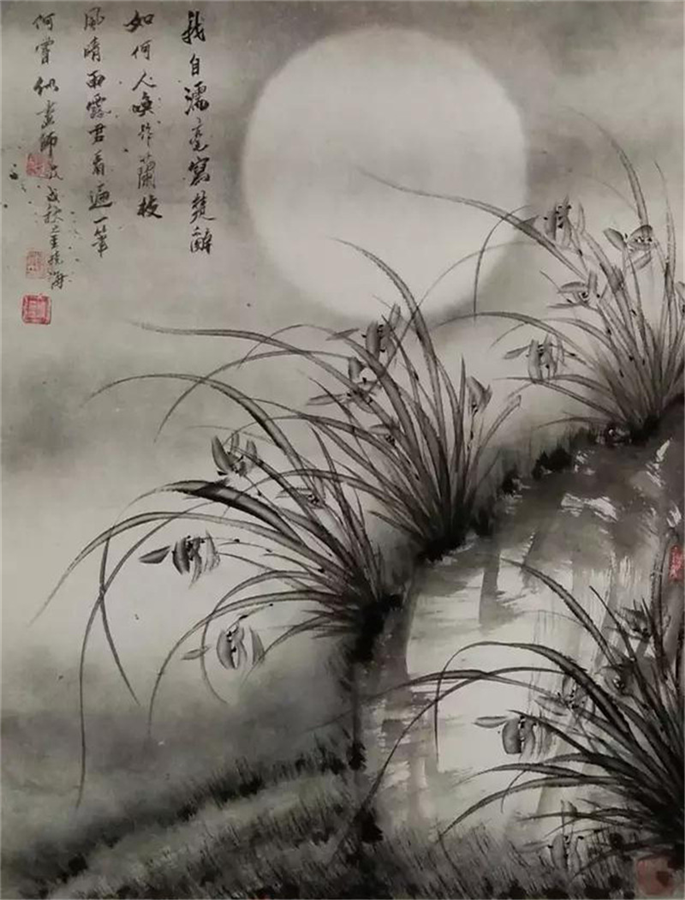 我自濡毫寫楚辭
如何人喚作蘭枝
風晴雨露君看遍一筆
何嘗似畫師 戌秋